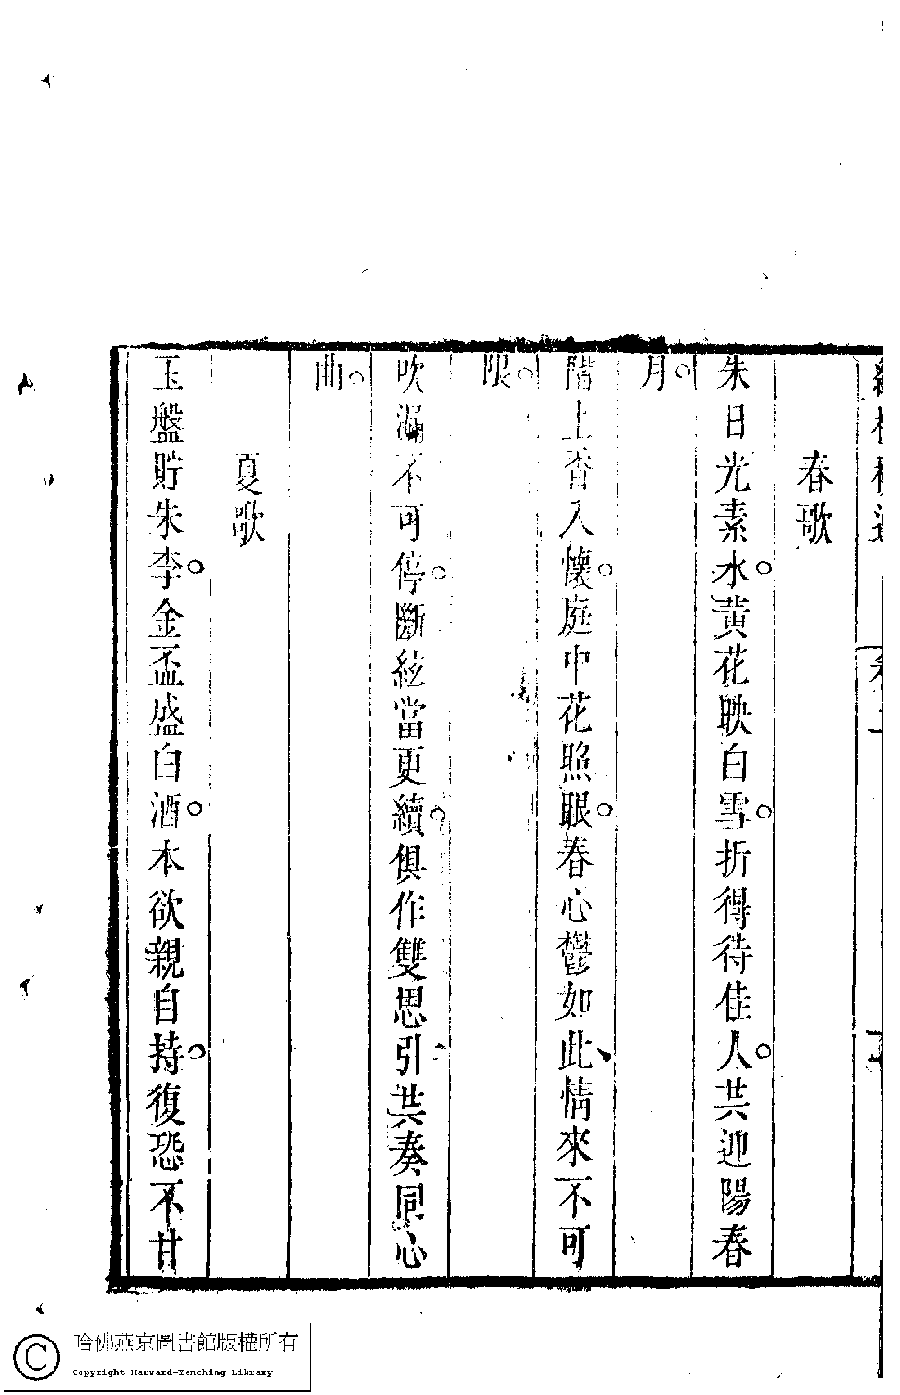 春歌
朱日光素氷○黃花映白雪○折得待佳人○共迎陽春
月○
階上香入懷○庭中花照眼○春心鬱如此、情來不可
限○
吹漏不可停○斷絃當更續○俱作雙思引、共奏同心
曲○
夏歌
玉盤貯朱李○金盃盛白酒○本欲親自持○復恐不甘
哈佛燕京圖書館版權所有
Copyright Harvard-Yenching Library